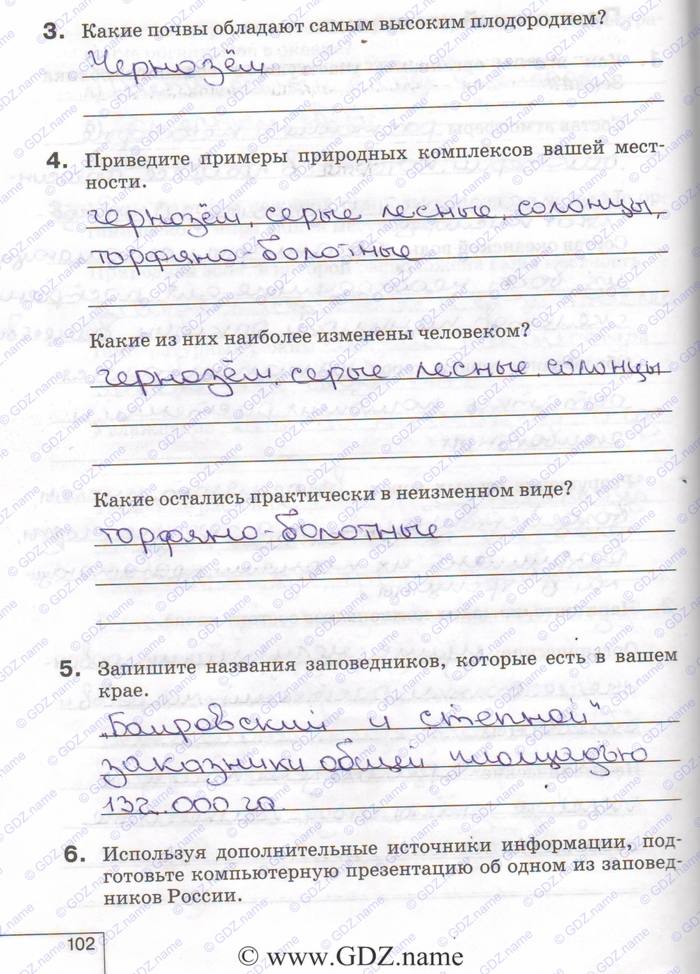 3. Какие почвы обладают самым высоким плодородием?
Чернозём
4. Приведите примеры природных комплексов вашей мест-
ности.
чернозём, серые лесные, солонцы,
торфяно-болотные
Какие из них наиболее изменены человеком?
чернозём, серые лесные, солонцы
Какие остались практически в неизменном виде?
торфяно-болотные
5. Запишите названия заповедников, которые есть в вашем
крае.
„Баировский и степной"
заказники общей площадью
132.000 га.
6. Используя дополнительные источники информации, под-
готовьте компьютерную презентацию об одном из заповед-
ников России.
102
© www.GDZ.name